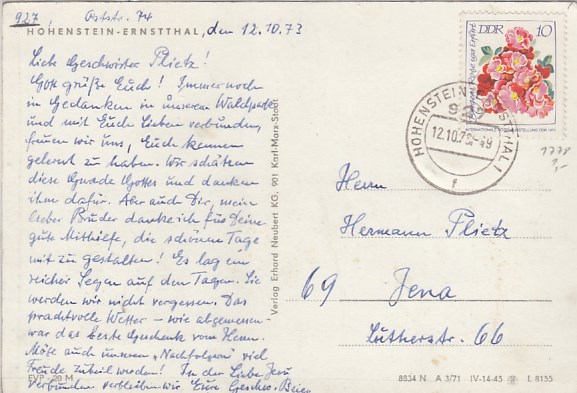 927 Poststr. 74
HOHENSTEIN-ERNSTTHAL, den 12.10.73
Liebe Geschwister Plietz!
Gott grüße Euch! Immer noch
in Gedanken in unserem Waldpark
und mit Euch Lieben verbunden,
freuen wir uns, Euch kennen
gelernt zu haben. Wir schätzen
diese Gnade Gottes und danken
ihm dafür. Aber auch Dir, mein
lieber Bruder danke ich für Deine
gute Mithilfe, die schönen Tage
mit zu gestalten! Es lag ein
reicher Segen auf den Tagen. Sie
werden wir nicht vergessen. Das
prachtvolle Wetter – wie abgemessen –
war das beste Geschenk vom Herrn.
Möge auch unseren "Nachfolgern" viel
Freude zuteil werden! In der Liebe Jesu
verbunden verbleiben wir Eure Geschw. Beier
EVP -,20 M
Verlag Erhard Neubert KG, 901 Karl-Marx-Stadt
DDR 10
INTERNATIONALE GARTENBAUAUSSTELLUNG DER DDR
HOHENSTEIN-ERNSTTHAL 1
92
12.10.73
f
1778
Herrn
Hermann Plietz
69 Jena
Lutherstr. 66
8834 N A 3/71 IV-14-45 L 8155